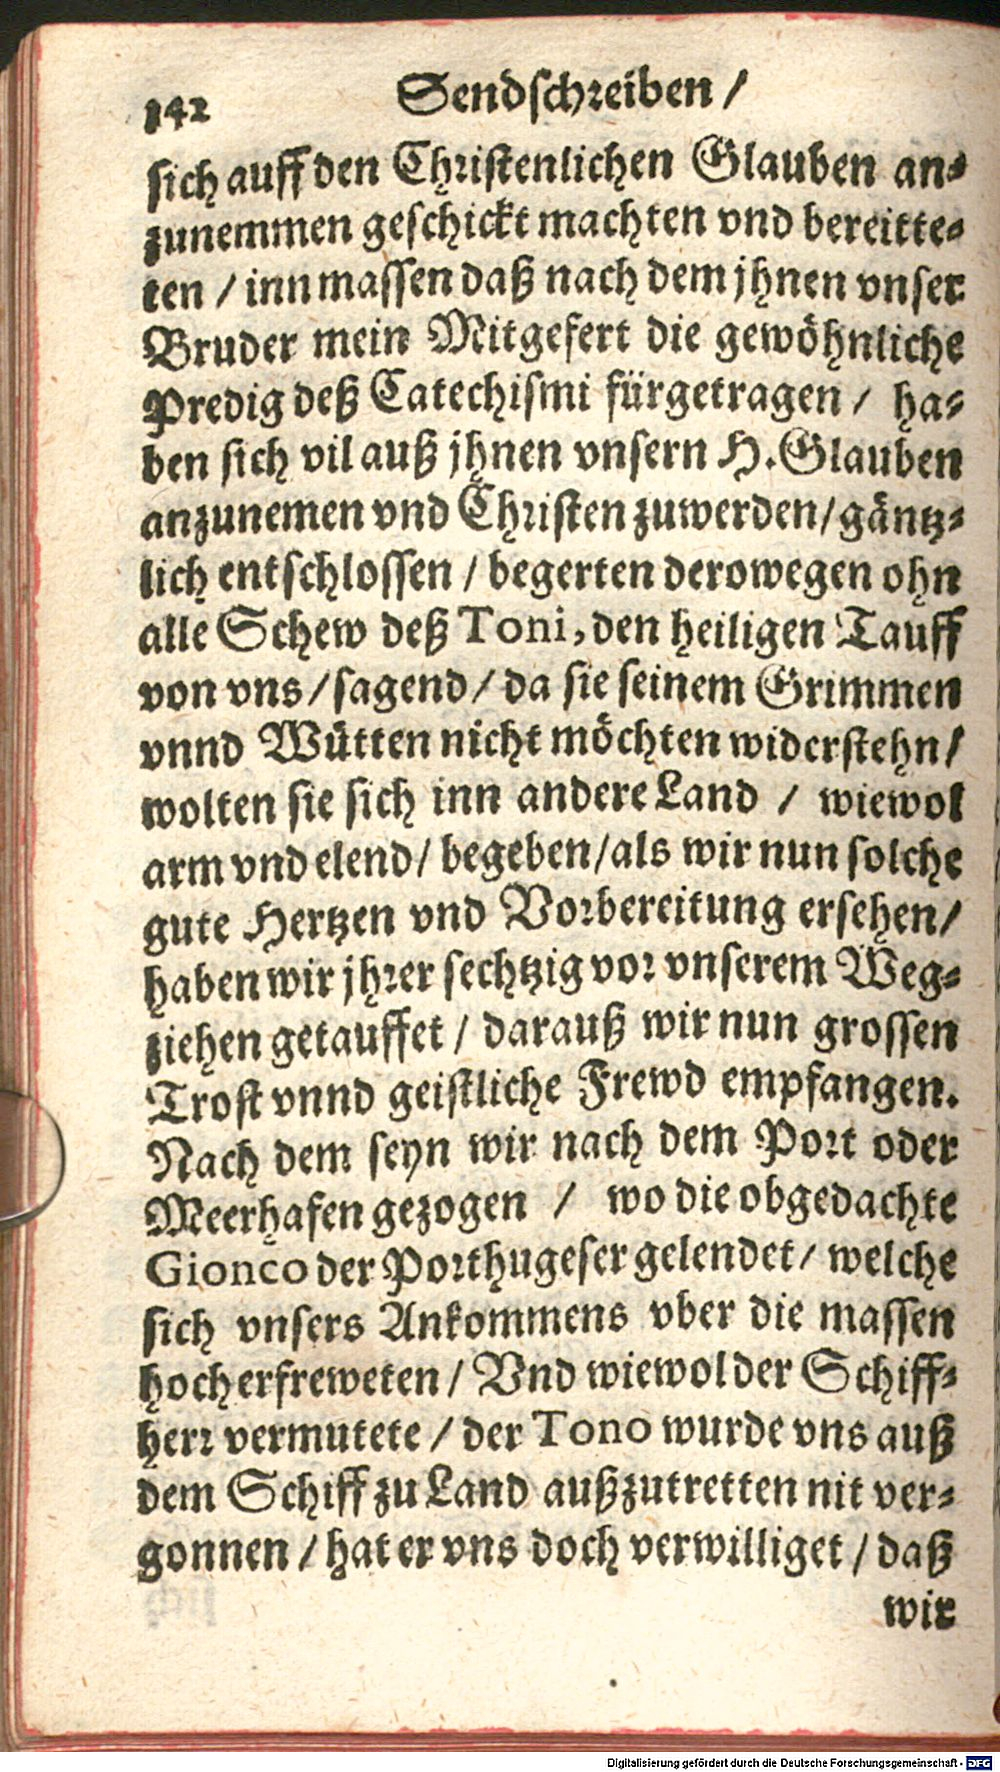 142 Sendschreiben /
sich auff den Christenlichen Glauben an-
zunemmen geschickt machten vnd bereitte-
ten / inn massen daß nach dem jhnen vnser
Bruder mein Mitgefert die gewöhnliche
Predig deß Catechismi fürgetragen / ha-
ben sich vil auß jhnen vnsern H. Glauben
anzunemen vnd Christen zuwerden / gäntz-
lich entschlossen / begerten derowegen ohn
alle Schew deß Toni, den heiligen Tauff
von vns / sagend / da sie seinem Grimmen
vnnd Wütten nicht möchten widerstehn /
wolten sie sich inn andere Land / wiewol
arm vnd elend / begeben / als wir nun solche
gute Hertzen vnd Vorbereitung ersehen /
haben wir jhrer sechtzig vor vnserem Weg-
ziehen getauffet / darauß wir nun grossen
Trost vnnd geistliche Frewd empfangen.
Nach dem seyn wir nach dem Port oder
Meerhafen gezogen / wo die obgedachte
Gionco der Porthugeser gelendet / welche
sich vnsers Ankommens vber die massen
hoch erfreweten / Vnd wiewol der Schiff-
herr vermutete / der Tono wurde vns auß
dem Schiff zu Land außzutretten nit ver-
gonnen / hat er vns doch verwilliget / daß
wir
Digitalisierung gefördert durch die Deutsche Forschungsgemeinschaft - DFG